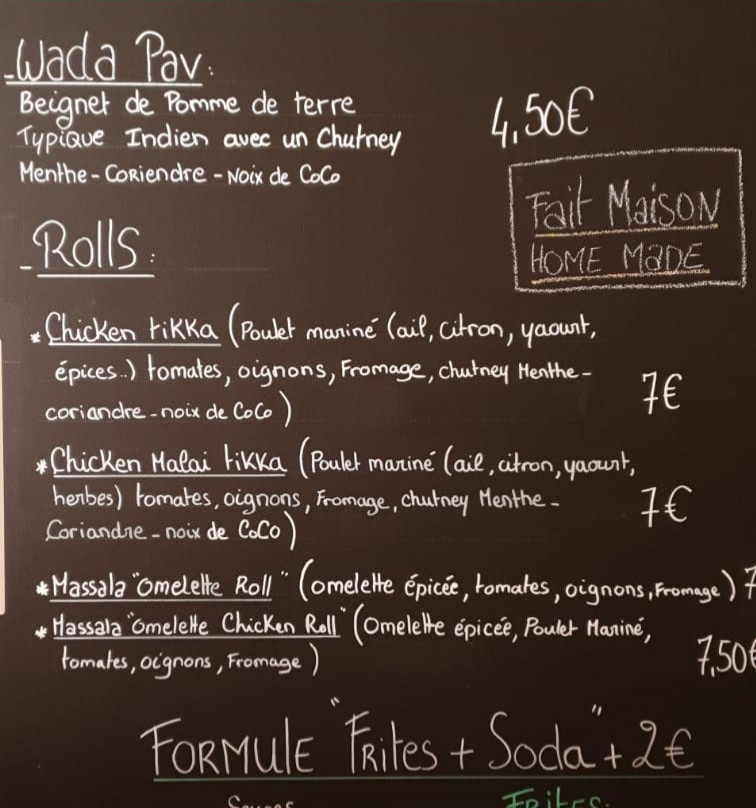 -Wada Pav:
Beignet de Pomme de terre
Typique Indien avec un Chutney
Menthe - Coriendre - Noix de CoCo
4,50€
Fait Maison
HOME MADE
- Rolls:
* Chicken tikka (Poulet mariné (ail, citron, yaourt,
épices..) tomates, oignons, Fromage, chutney Menthe -
coriandre - noix de CoCo)
7€
* Chicken Malai tikka (Poulet mariné (ail, citron, yaourt,
herbes) tomates, oignons, Fromage, chutney Menthe -
Coriandre - noix de CoCo)
7€
* Massala "Omelette Roll" (omelette épicée, tomates, oignons, Fromage) 7
* Massala "Omelette Chicken Roll" (Omelette épicée, Poulet Mariné,
tomates, oignons, Fromage)
7,50€
FORMULE "Frites + Soda" + 2€